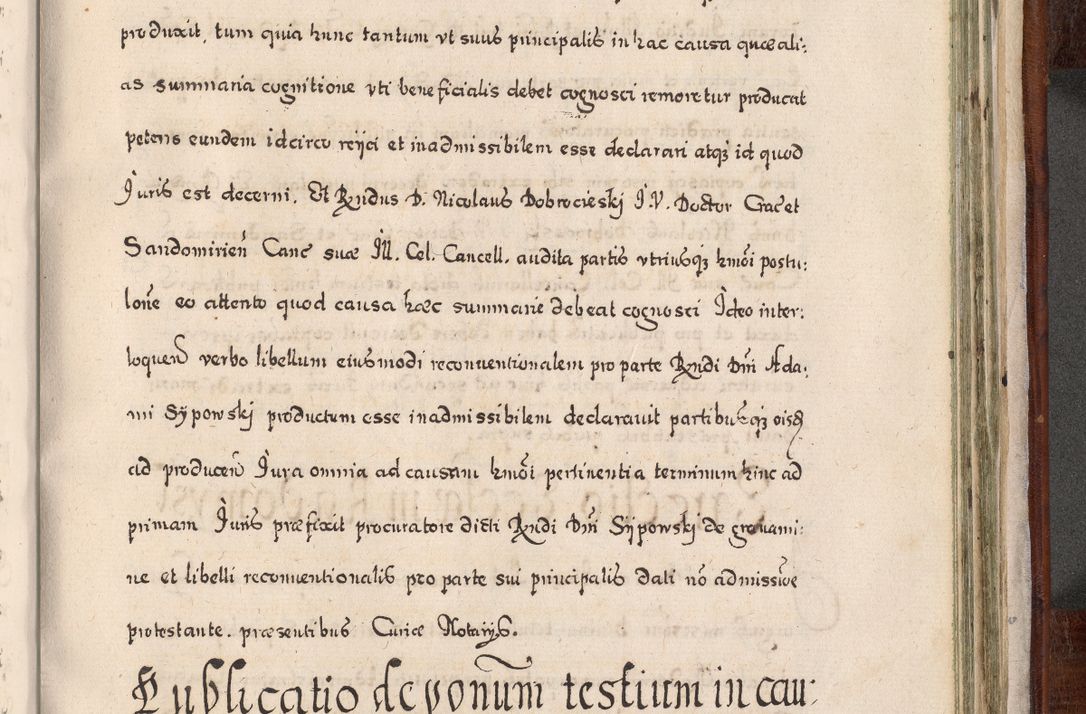 produxit, tum quia hunc tantum vt suus principalis in hac causa quæ ali:
as summaria cognitione vti beneficialis debet cognosci remoretur producat
petens eundem idcirco reijci et inadmissibilem esse declarari atq́ȝ id quod
Juris est decerni. Et Rñdus D. Nicolaus Dobrocieskj J. V. Doctor Crac̃ et
Sandomirień Canc̃ suæ Jll. Cel. Cancell. audita partis vtriusq́ȝ hmõi postu:
lone eo attento quod causa hæc summarie debeat cognosci Jdeo inter:
loquen̄ verbo libellum eiusmodi reconuentionalem pro parte Rndi Dñi Ada:
mi Sÿpowskj productum esse inadmissibilem declarauit partibusq́ȝ oibȝ
ad producen̄ Jura omnia ad causam hmõi pertinentia terminum hinc ad
primam Juris præfixit procuratore dicti Rndi Dñi Sÿpowskj de grauami:
ne et libelli reconuentionalis pro parte sui principalis dati nõ admissione
protestante. præsentibus Curiæ Notarijs.
Publicatio deponum̄ testium in cau: